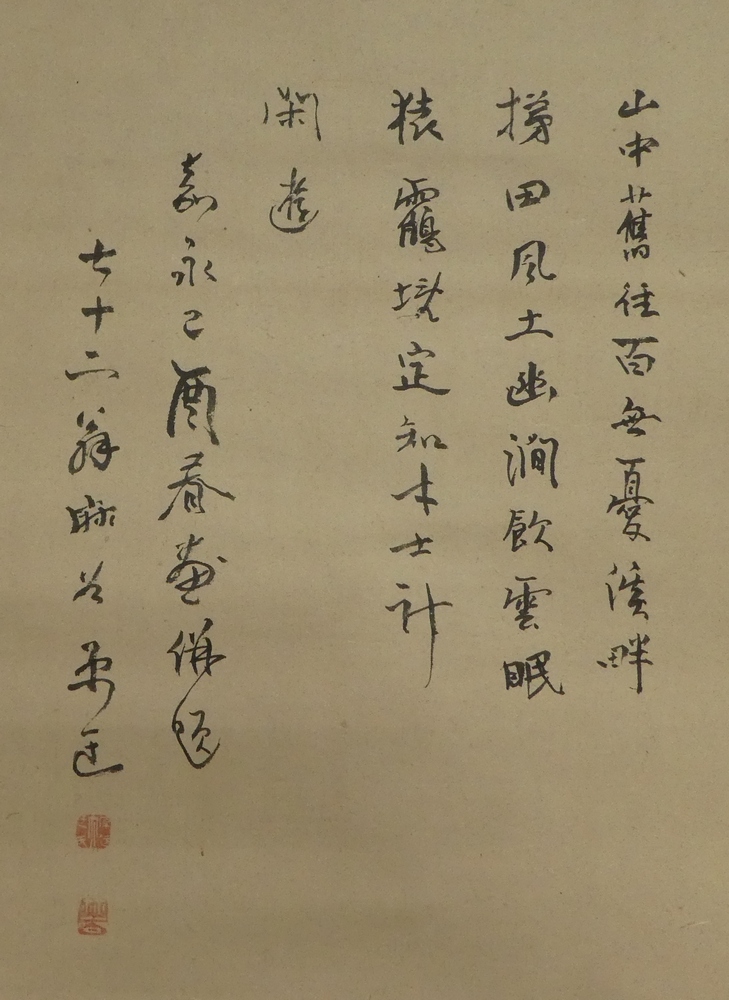 山中舊往百無憂溪畔
梯田風土幽澗飲雲眠
猿靏境定知木士計
閑遊
嘉永己酉春畫併題
七十二翁 谷